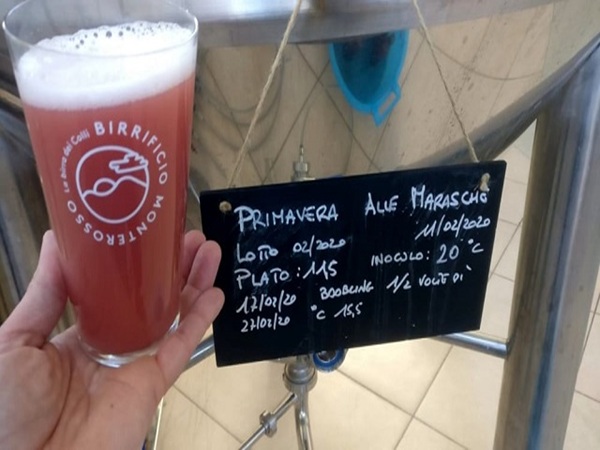 BIRRIFICIO MONTEROSSO
La birra dei Colli
PRIMAVERA ALLE MARASCHE
11/02/2020
LOTTO 02/2020
INOCULO: 20 °C
PLATO: 11,5
12/02/20 BOOBLING 1/2 VOLTE DÌ
27/02/20 °C 15,5